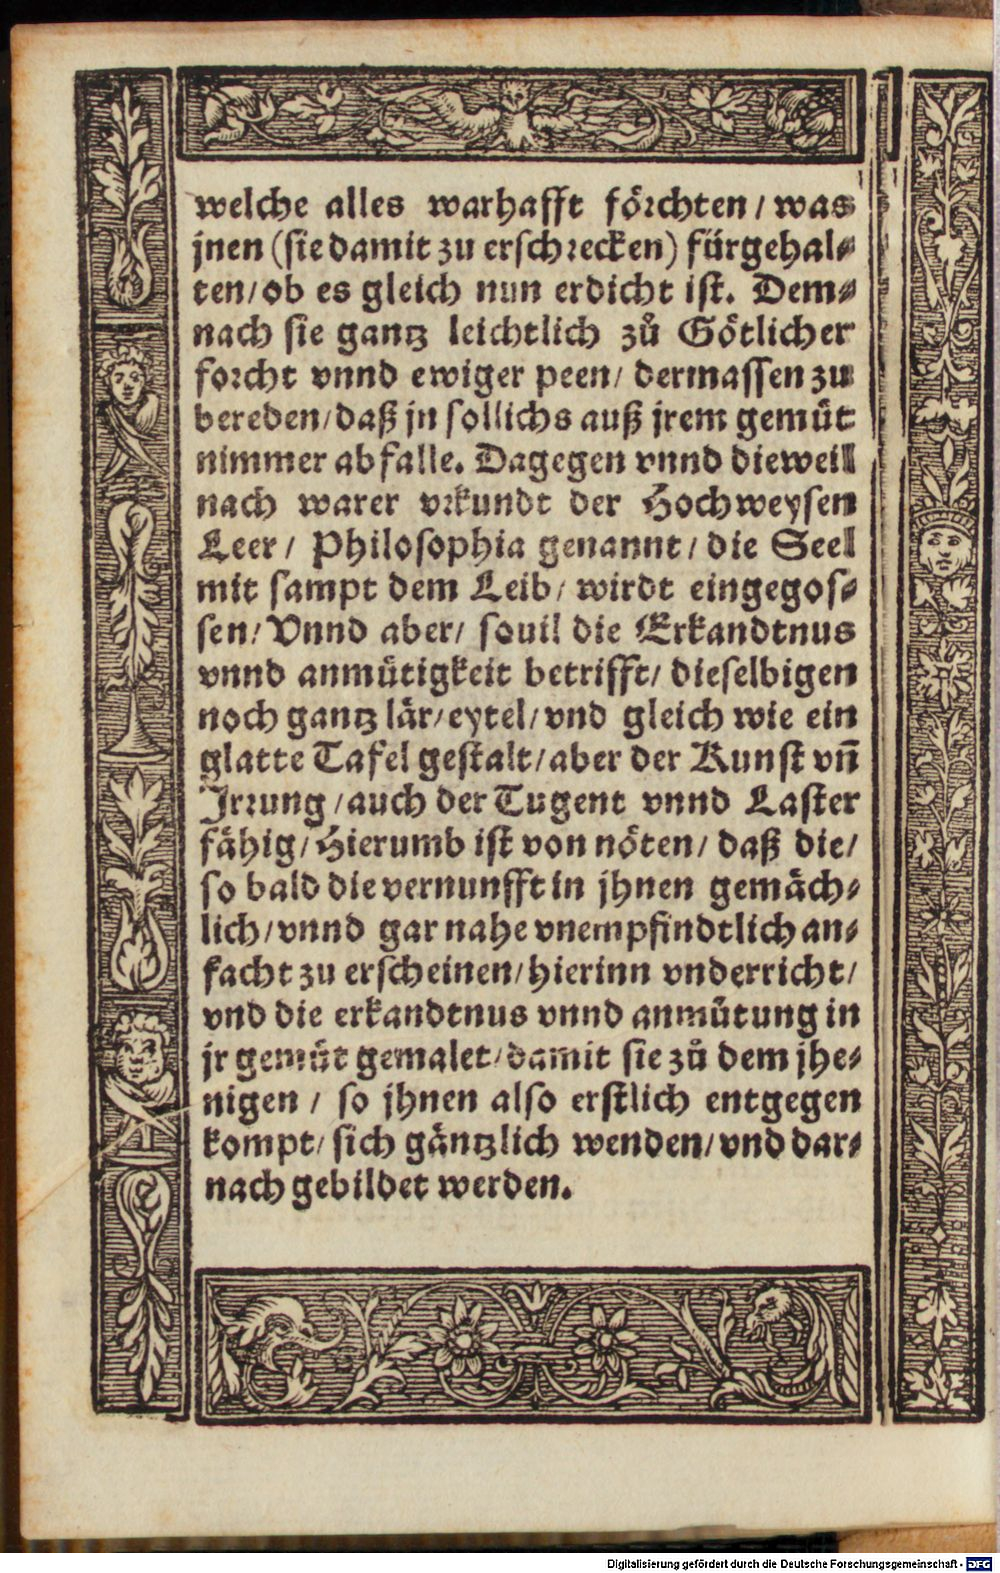 welche alles warhafft förchten / was
jnen (sie damit zu erschrecken) fürgehal⸗
ten / ob es gleich nun erdicht ist. Dem⸗
nach sie gantz leichtlich zů Götlicher
forcht vnnd ewiger peen / dermassen zu
bereden / daß jn sollichs auß jrem gemüt
nimmer abfalle. Dagegen vnnd dieweil
nach warer vrkundt der Hochweysen
Leer / Philosophia genannt / die Seel
mit sampt dem Leib / wirdt eingegos⸗
sen / Vnnd aber / souil die Erkandtnus
vnnd anmütigkeit betrifft / dieselbigen
noch gantz lär / eytel / vnd gleich wie ein
glatte Tafel gestalt / aber der Kunst vñ
Jrrung / auch der Tugent vnnd Laster
fähig / Hierumb ist von nöten / daß die /
so bald die vernunfft in jhnen gemäch⸗
lich / vnnd gar nahe vnempfindtlich an⸗
facht zu erscheinen / hierinn vnderricht /
vnd die erkandtnus vnnd anmütung in
jr gemüt gemalet / damit sie zů dem jhe⸗
nigen / so jhnen also erstlich entgegen
kompt / sich gäntzlich wenden / vnd dar⸗
nach gebildet werden.
Digitalisierung gefördert durch die Deutsche Forschungsgemeinschaft - DFG